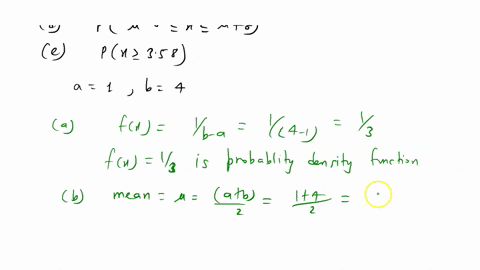 P( μ-σ ≤ x ≤ μ+σ)
(e) P(x ≥ 3.58)
a = 1 , b = 4
(a) f(x) = 1/b-a = 1/(4-1) = 1/3
f(x) = 1/3 is probablity density function
(b) mean = μ = (a+b)/2 = 1+4/2 =